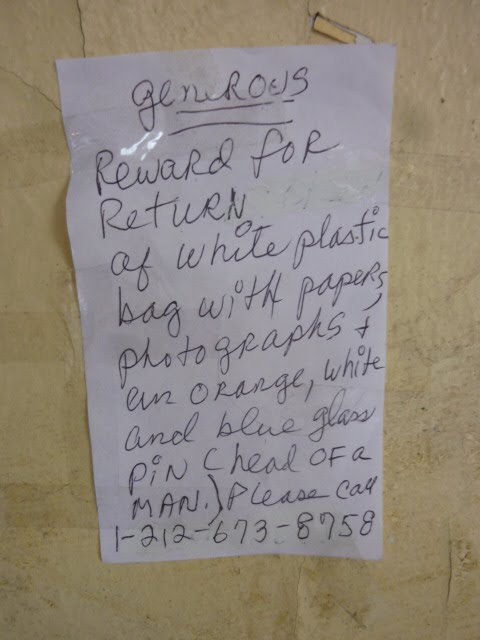 GENEROUS
Reward for
Return
of white plastic
bag with papers,
photographs +
an orange, white
and blue glass
pin (head of a
MAN.) Please call
1-212-673-8758